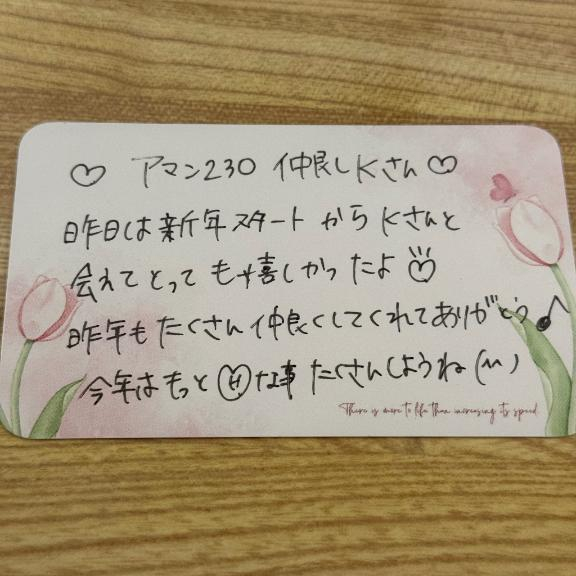 ♡ アマン230 仲良しKさん ♡
昨日は新年スタートからKさんと
会えてとっても嬉しかったよ♡
昨年もたくさん仲良くしてくれてありがとう♪
今年はもっとHな事たくさんしようね(^^)
There is more to life than increasing its speed.